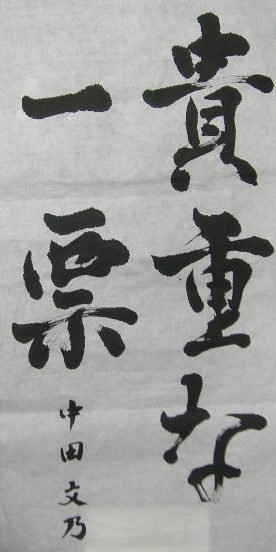 貴重な
一票
中田文乃